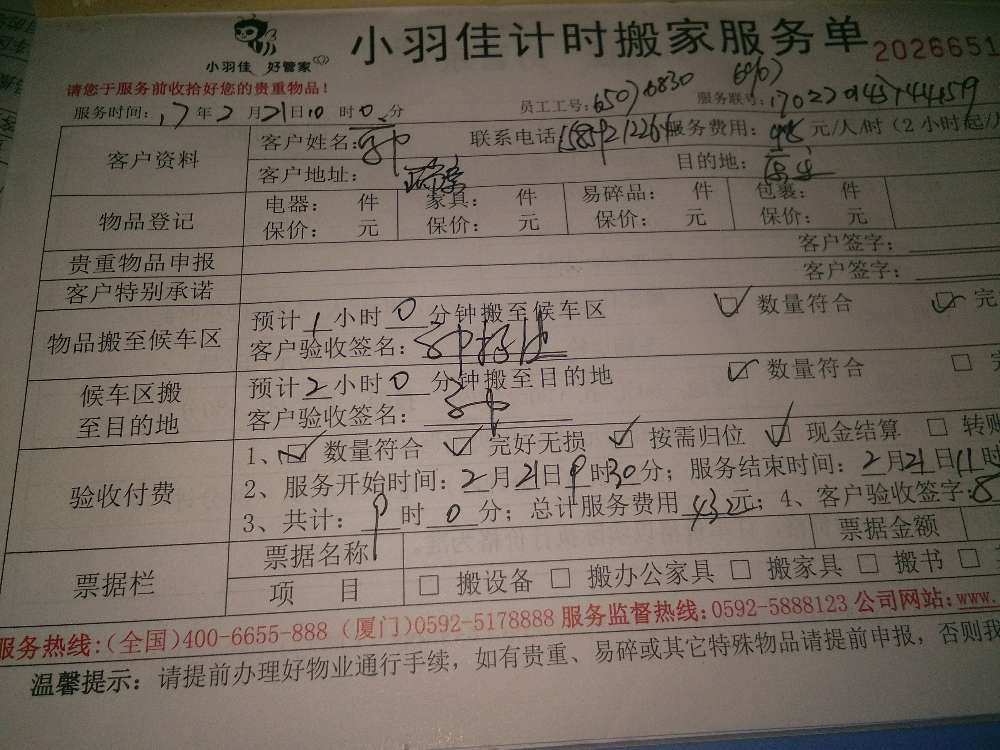 小羽佳 好管家
小羽佳计时搬家服务单
2026651
请您于服务前收拾好您的贵重物品!
服务时间: 17年2月21日10时0分 员工工号: 服务联号:
客户资料 客户姓名: 联系电话 服务费用: 元/人/时(2小时起/
客户地址: 目的地:
物品登记 电器: 件 家具: 件 易碎品: 件 包裹: 件
保价: 元 保价: 元 保价: 元 保价: 元
客户签字:
贵重物品申报
客户签字:
客户特别承诺
物品搬至候车区 预计1小时0分钟搬至候车区 数量符合 完
客户验收签名:
候车区搬至目的地 预计2小时0分钟搬至目的地 数量符合
客户验收签名:
验收付费 1、数量符合 完好无损 按需归位 现金结算 转账
2、服务开始时间:2月21日9时30分; 服务结束时间:2月21日11时
3、共计: 时0分; 总计服务费用 元; 4、客户验收签字:
票据栏 票据名称 票据金额
项 目 搬设备 搬办公家具 搬家具 搬书
服务热线:(全国)400-6655-888 (厦门)0592-5178888 服务监督热线:0592-5888123 公司网站:www.
温馨提示: 请提前办理好物业通行手续, 如有贵重、易碎或其它特殊物品请提前申报, 否则我